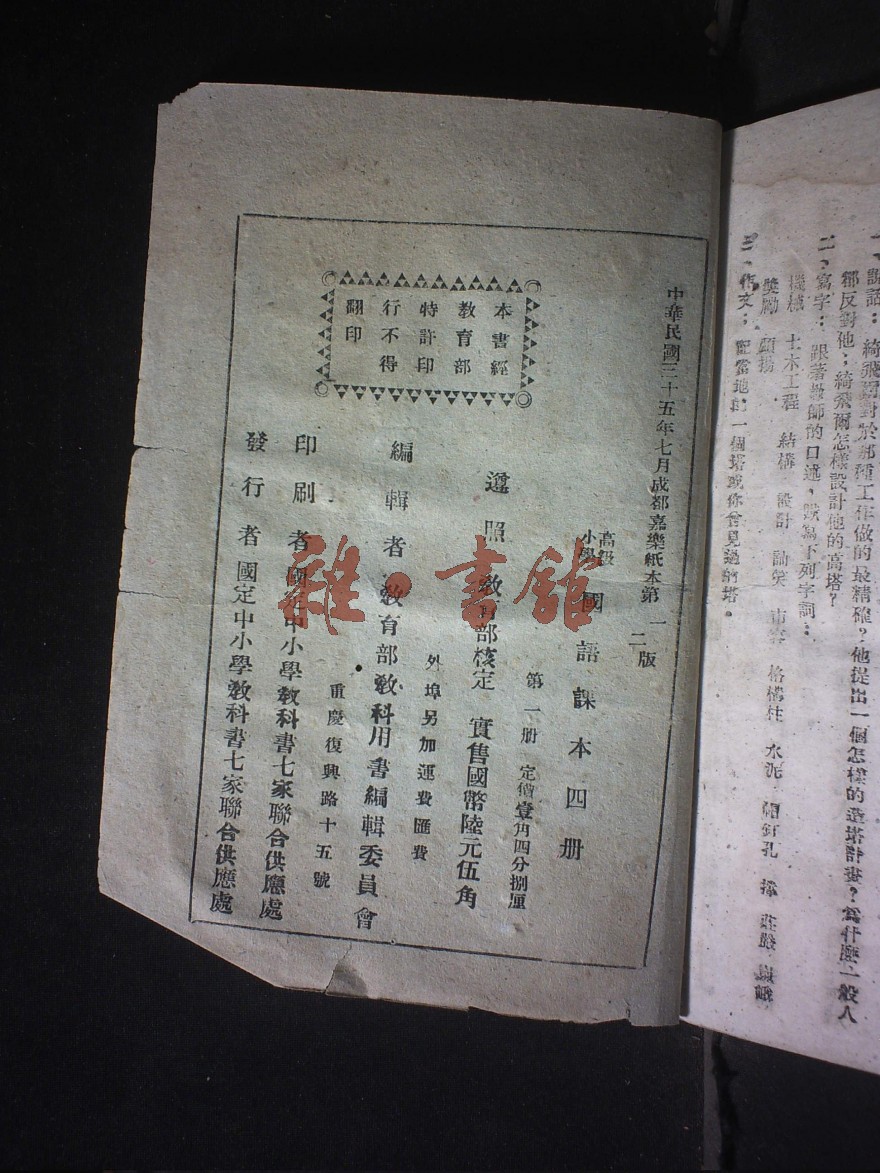 一、說話：綺飛爾對於那種工作做的最精確？他提出一個怎樣的造塔計畫？爲什麼一般人
都反對他？綺飛爾怎樣設計他的高塔？
二、寫字：跟著教師的口述，默寫下列字詞：
機械　土木工程　結構　設計　訕笑　市容　格構柱　水泥　鉚釘孔　擇　莊嚴　巍峨
獎勵　顯揚
三、作文：記當地的一個塔或你曾見過的塔。
中華民國三十五年七月成都嘉樂紙本第一二版
高級小學　國語課本四册
第一册　定價壹角四分捌厘
遵照教育部核定　實售國幣陸元伍角
外埠另加運費匯費
編輯者　教育部教科用書編輯委員會
重慶復興路十五號
印刷者　國定中小學教科書七家聯合供應處
發行者　國定中小學教科書七家聯合供應處
本書經
教育部
特許印
行不得
翻印
雜·書館